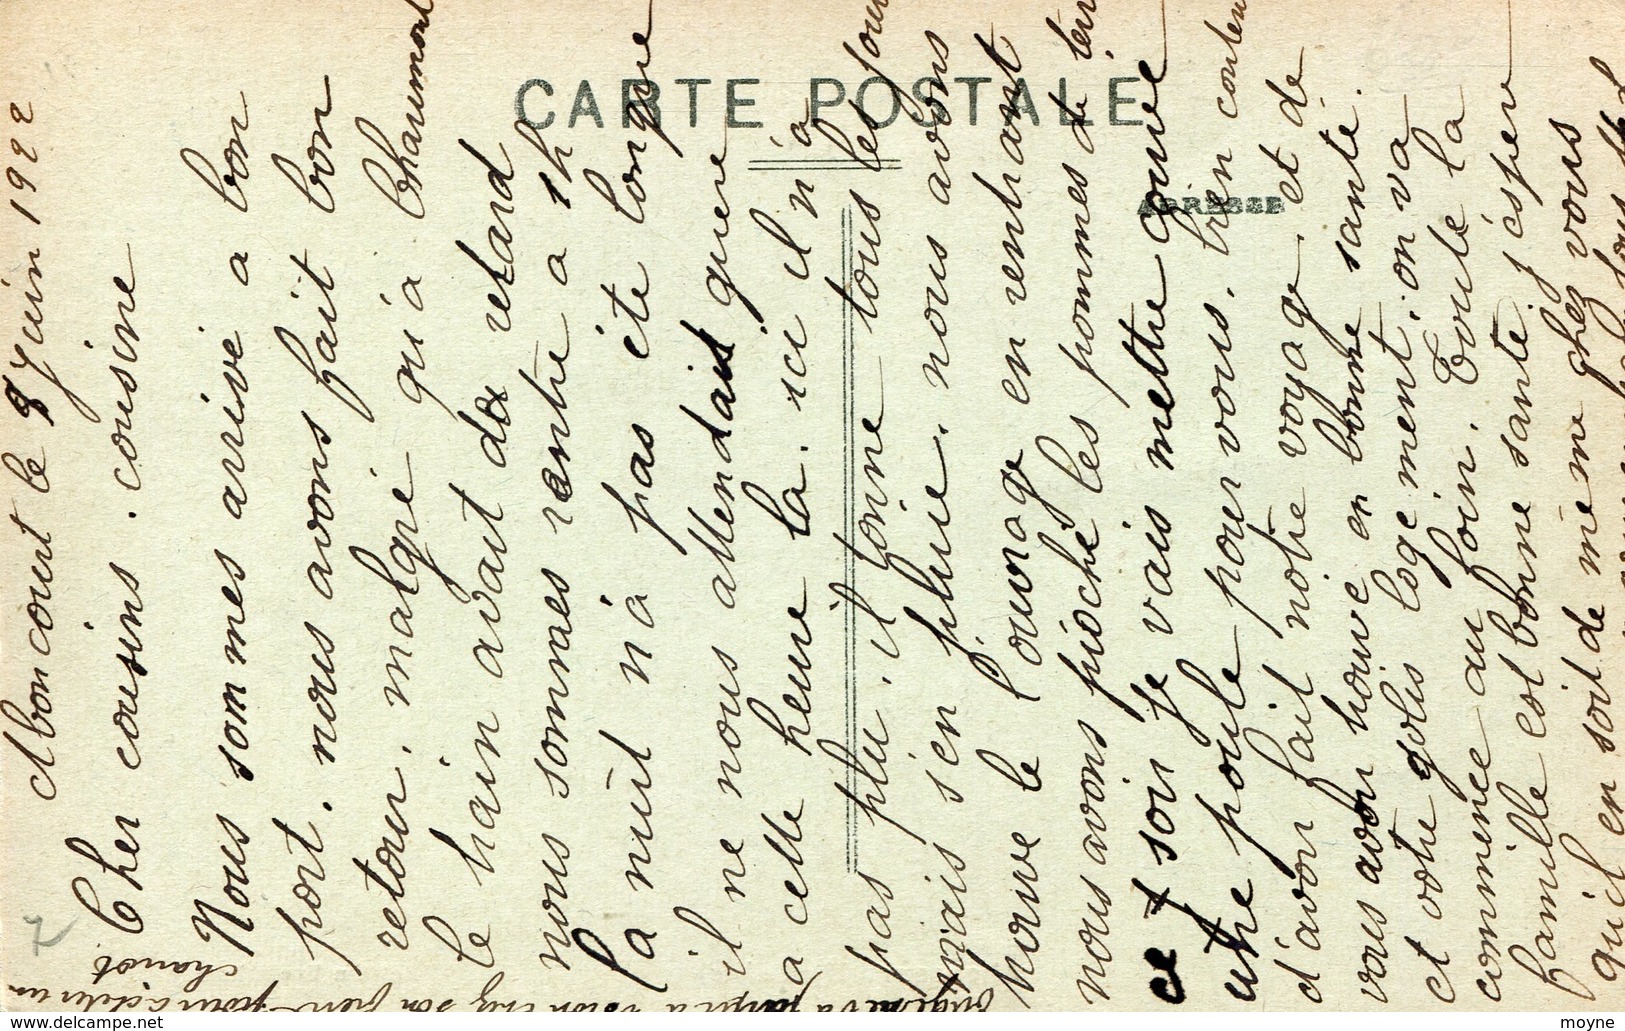 CARTE POSTALE
ADRESSE
Aboncourt le 8 Juin 1922
Cher cousins . cousine
Nous sommes arrivé a bon
port. nous avons fait bon
retour. malgré qu'a Chaumont
le train avait de retard
nous sommes rentré a 1h
la nuit n'a pas été longue
il ne nous attendait guere
a cette heure la. ici il n'a
pas plu. il tonne tous les jour
mais s'en pluie. nous avons
trouve le l'ouvrage en rentrant
nous avons pioché les pommes de terr
ce soir je vais mettre couvé
une poule pour vous. bien conten
d'avoir fait notre voyage. et de
vous avoir trouvé en bonne santé.
et votre jolis logement. on va
commencé au foin. Toute la
famille est bonne santé j'éspere
qu'il en soit de même chez vous
Eugene va jusqu'a son pour acheter un
chariot
7
moyne